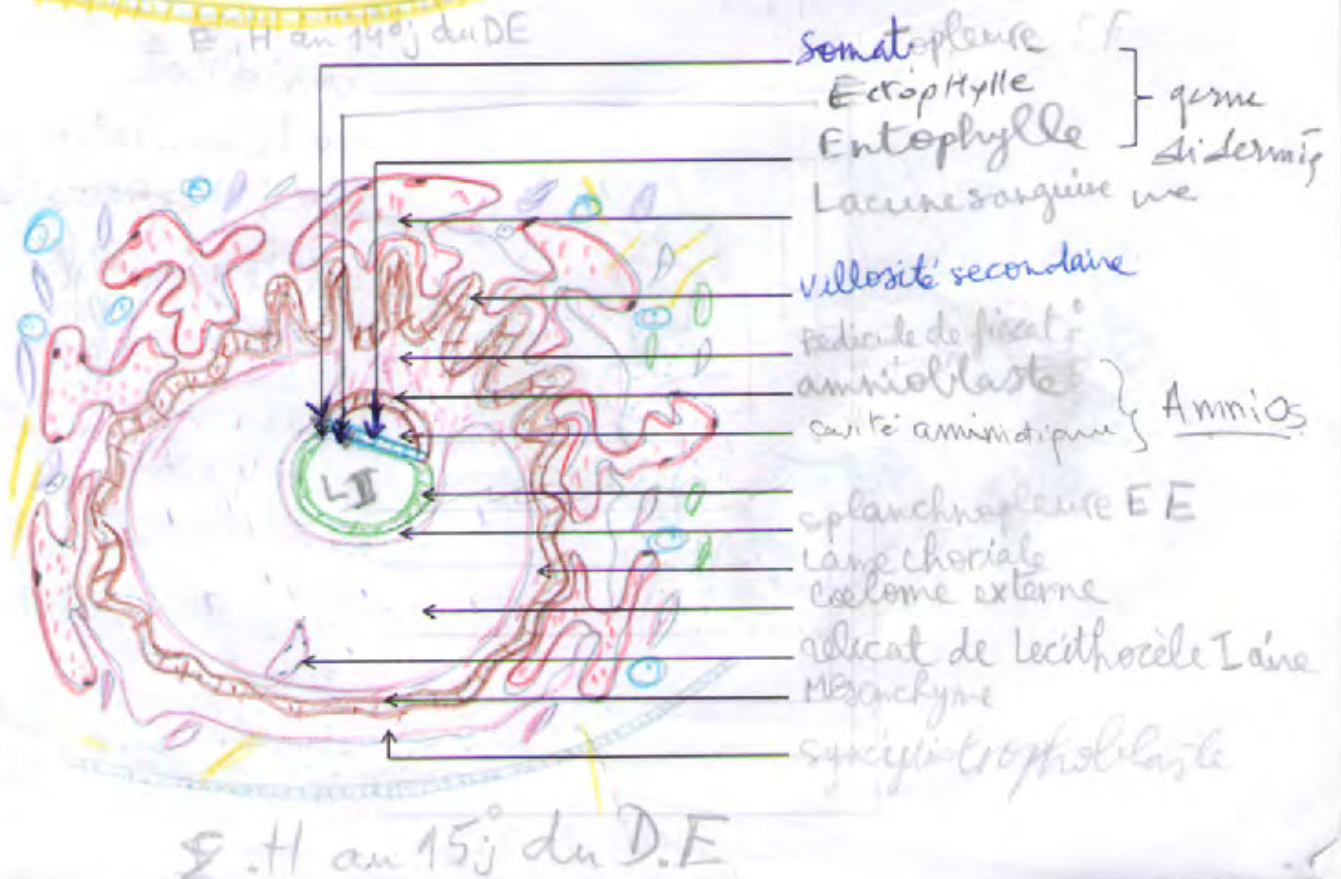 E.H au 14°j du DE
somatopleure
EctopHylle
Entophylle
germe
didermiq
Lacune sanguine
villosité secondaire
pedicule de fixat°
amnioblaste
cavité amniotique
Amnios
L II
splanchnopleure E E
Lame choriale
cœlome externe
relicat de Lécithocèle I aire
Mésenchyme
syncytiotrophoblaste
E.H au 15°j du D.E